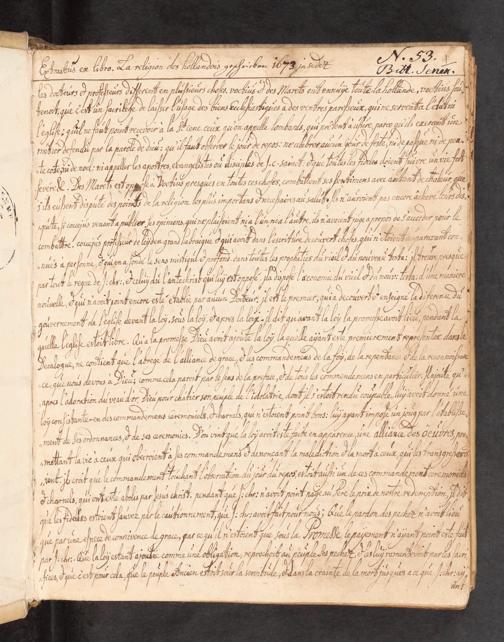 N. 53.
Extractus ex libro. La religion des hollandois 1673 in
B. H. Senior.
les docteurs & professeurs different en plusieurs choses. voetius & des Marets ont ennuyé toute la hollande, voetius
tenoit, que c'est un sacrilege de laisser l'usage des biens Ecclesiastiques à des ventres paresseux, qui ne servent à l'estat ni
l'eglise; qu'il ne faut point recevoir à la St cene ceux qu'on appelle lombards, qui pretent à usure, parce qu'ils exercent un
mestier defendu par la parole de Dieu; qu'il faut observer le jour de repos; ne celebrer aucun jour de feste, ni de pasque ni de
ni appeller les apostres, evangelistes ou disciples de J.C. saincts & que tous les fideles doivent suivre une vie fort
severe &c. Des Marets est opposé à Voetius presques en toutes ces choses, combattent ses sentimens avec autant de chaleur que
s'ils eussent disputé des points de la religion les plus importans & necessaires au salut. Ils n'auroient pas encore achevé leurs dis-
pute, si coccejus venant à publier ses opinions, qui ne plaisoient ni à l'un ni à l'autre, ils n'avoient jugé à propos de s'accorder pour le
combattre. coccejus professeur de Leyden grand hebraique & qui avoit dans l'escriture decouvert choses, qui n'estoient auparavant con-
nues à personne, & qui en a sondé le sens mistique & profond dans toutes les propheties du vieil & du nouveau testa: il trouve presque
par tout le regne de J. chr: & celuy du l'antechrist qui luy est opposé. Il a disposé l'oeconomie du vieil & du nouv: testa: d'une maniere
nouvelle, & qui n'avoit point encore esté etablie par aucun Docteur; il est le premier, qui a decouvert & enseigné la doctrine du
gouvernement de l'eglise devant la loy, sous la loy, & apres la loy. Il dit que avant la loy la promesse avoit lieu, pendant la
quelle l'eglise estoit libre. Qu'à la promesse Dieu avoit ajouté la loy, la quelle ayant esté premierement representée dans le
Decalogue, ne contient que l'abregé de l'alliance de grace, & les commandemens de la foy, de la repentance & de la reconnoissance
ce que nous devons à Dieu; comme cela paroit par le sens de la preface, & de tous les commandemens en particulier.
apres l'adoration du veau d'or, Dieu pour chatier son peuple de l'idolatrie, dont il s'estoit rendu coupable, luy avoit donné une
loy consistante en des commandemens ceremoniels, & charnels, qui n'estoient point bons, luy ayant imposé un joug par l'establisse-
ment de ses ordonnances, & de ses ceremonies. D'ou vient que la loy avoit esté faite en apparence une alliance des oeuvres, pro-
mettant la vie à ceux qui obeiroient à ses commandemens & denonçant la malediction & la mort à ceux qui les transgressero-
sent; il croit que le commandement touchant l'observation du jour du repos, estoit aussi un de ces commandemens ceremoniels
& charnels, qui ont esté abolis par Jesus christ; pendant que J. chr: n'avoit point payé au Pere le prix de nostre redemption, il dit
que les fideles estoient sauvez par le cautionnement, que J. chr: avoit fait pour nous; Que le pardon des pechez n'avoit lieu
que par une espece de connivence de grace, par ce qu'il n'estoient que sous la Promesse, le payement n'ayant point esté fait
par J. chr: Que la loy estant ajoutée comme une obligation, reprochoit au peuple ses pechez, & les luy ramentevoit par les sacri-
fices, & que c'est pour cela, que le peuple Ancien estoit sous la servitude, & dans la crainte de la mort jusques à ce que J. chr: ay-